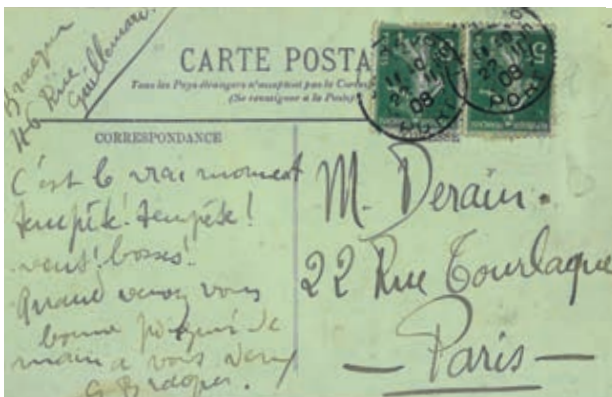 Braque
46 Rue
CARTE POSTA
Tous les Pays étrangers n'acceptent pas le Corresp
(Se renseigner à la Poste)
22 11
08
PORT
22 11
08
PORT
5
CORRESPONDANCE
C'est le vrai moment
tempête! tempête!
vent! bosses!
Quand venez vous
bonne poignée de
main a vous deux
G Braque.
M. Derain.
22 Rue Tourlaque
— Paris —